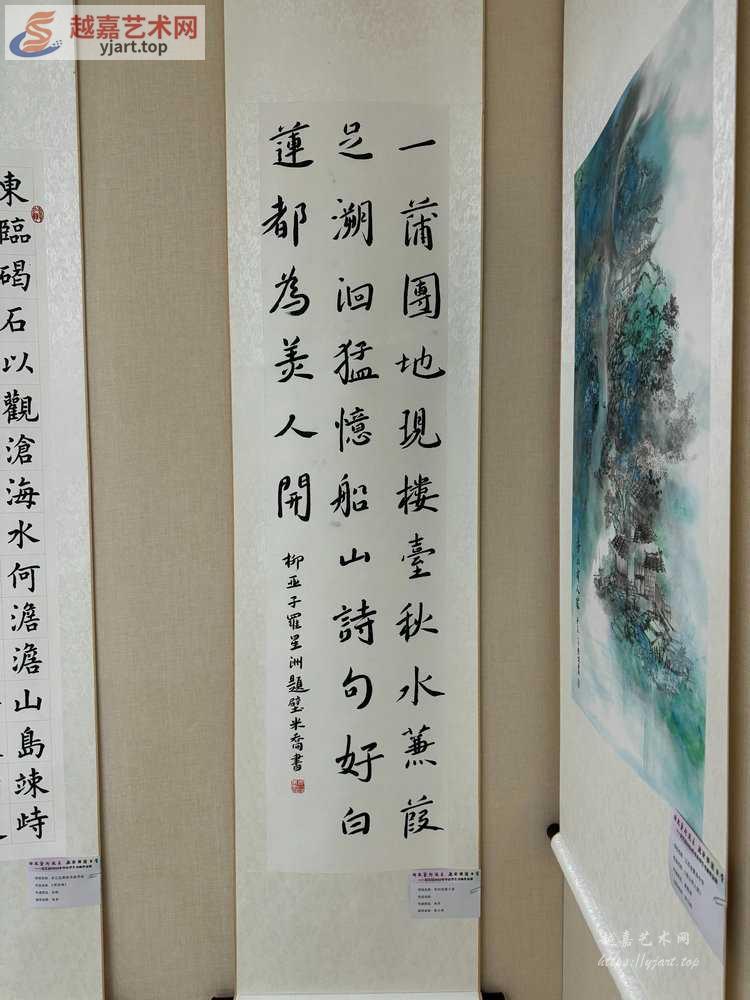 越嘉艺术网
yjart.top
一蒲團地現樓臺秋水蒹葭
足溯洄猛憶船山詩句好白
蓮都為美人開
柳亚子羅星洲題壁米喬書
東臨碣石以觀滄海水何澹澹山島竦峙
越嘉艺术网
https://yjart.top